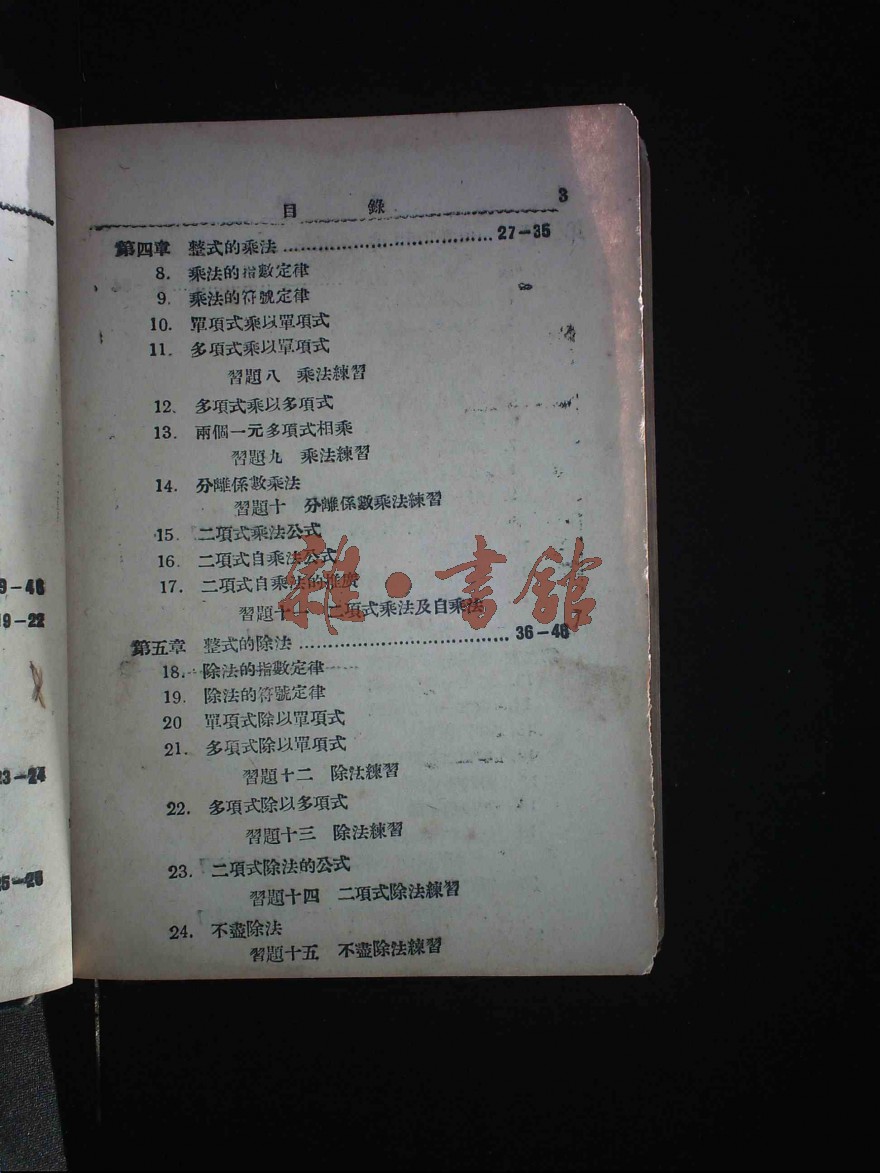 目 錄 3
第四章 整式的乘法 27－35
8. 乘法的指數定律
9. 乘法的符號定律
10. 單項式乘以單項式
11. 多項式乘以單項式
習題八 乘法練習
12. 多項式乘以多項式
13. 兩個一元多項式相乘
習題九 乘法練習
14. 分離係數乘法
習題十 分離係數乘法練習
15. 二項式乘法公式
16. 二項式自乘法公式
17. 二項式自乘法的推廣
習題十一 二項式乘法及自乘法
雜·書館
第五章 整式的除法 36－48
18. 除法的指數定律
19. 除法的符號定律
20 單項式除以單項式
21. 多項式除以單項式
習題十二 除法練習
22. 多項式除以多項式
習題十三 除法練習
23. 二項式除法的公式
習題十四 二項式除法練習
24. 不盡除法
習題十五 不盡除法練習